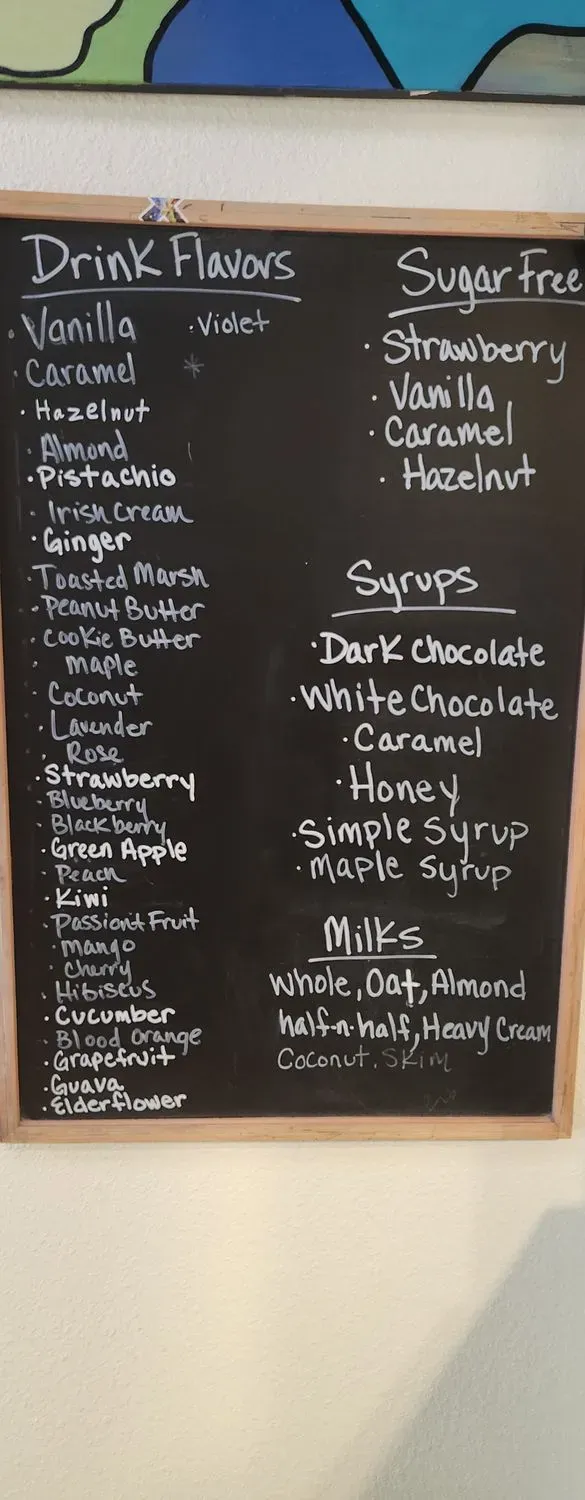 Drink Flavors
· Vanilla
· Violet
· Caramel
*
· Hazelnut
· Almond
· Pistachio
· Irish Cream
· Ginger
· Toasted Marsh
· Peanut Butter
· Cookie Butter
· maple
· Coconut
· Lavender
· Rose
· Strawberry
· Blueberry
· Blackberry
· Green Apple
· Peach
· Kiwi
· Passiont Fruit
· mango
· Cherry
· Hibiscus
· Cucumber
· Blood Orange
· Grapefruit
· Guava
· Elderflower
Sugar Free
· Strawberry
· Vanilla
· Caramel
· Hazelnut
Syrups
· Dark Chocolate
· White Chocolate
· Caramel
· Honey
· Simple Syrup
· Maple Syrup
Milks
Whole, Oat, Almond
half-n-half, Heavy Cream
Coconut, Skim